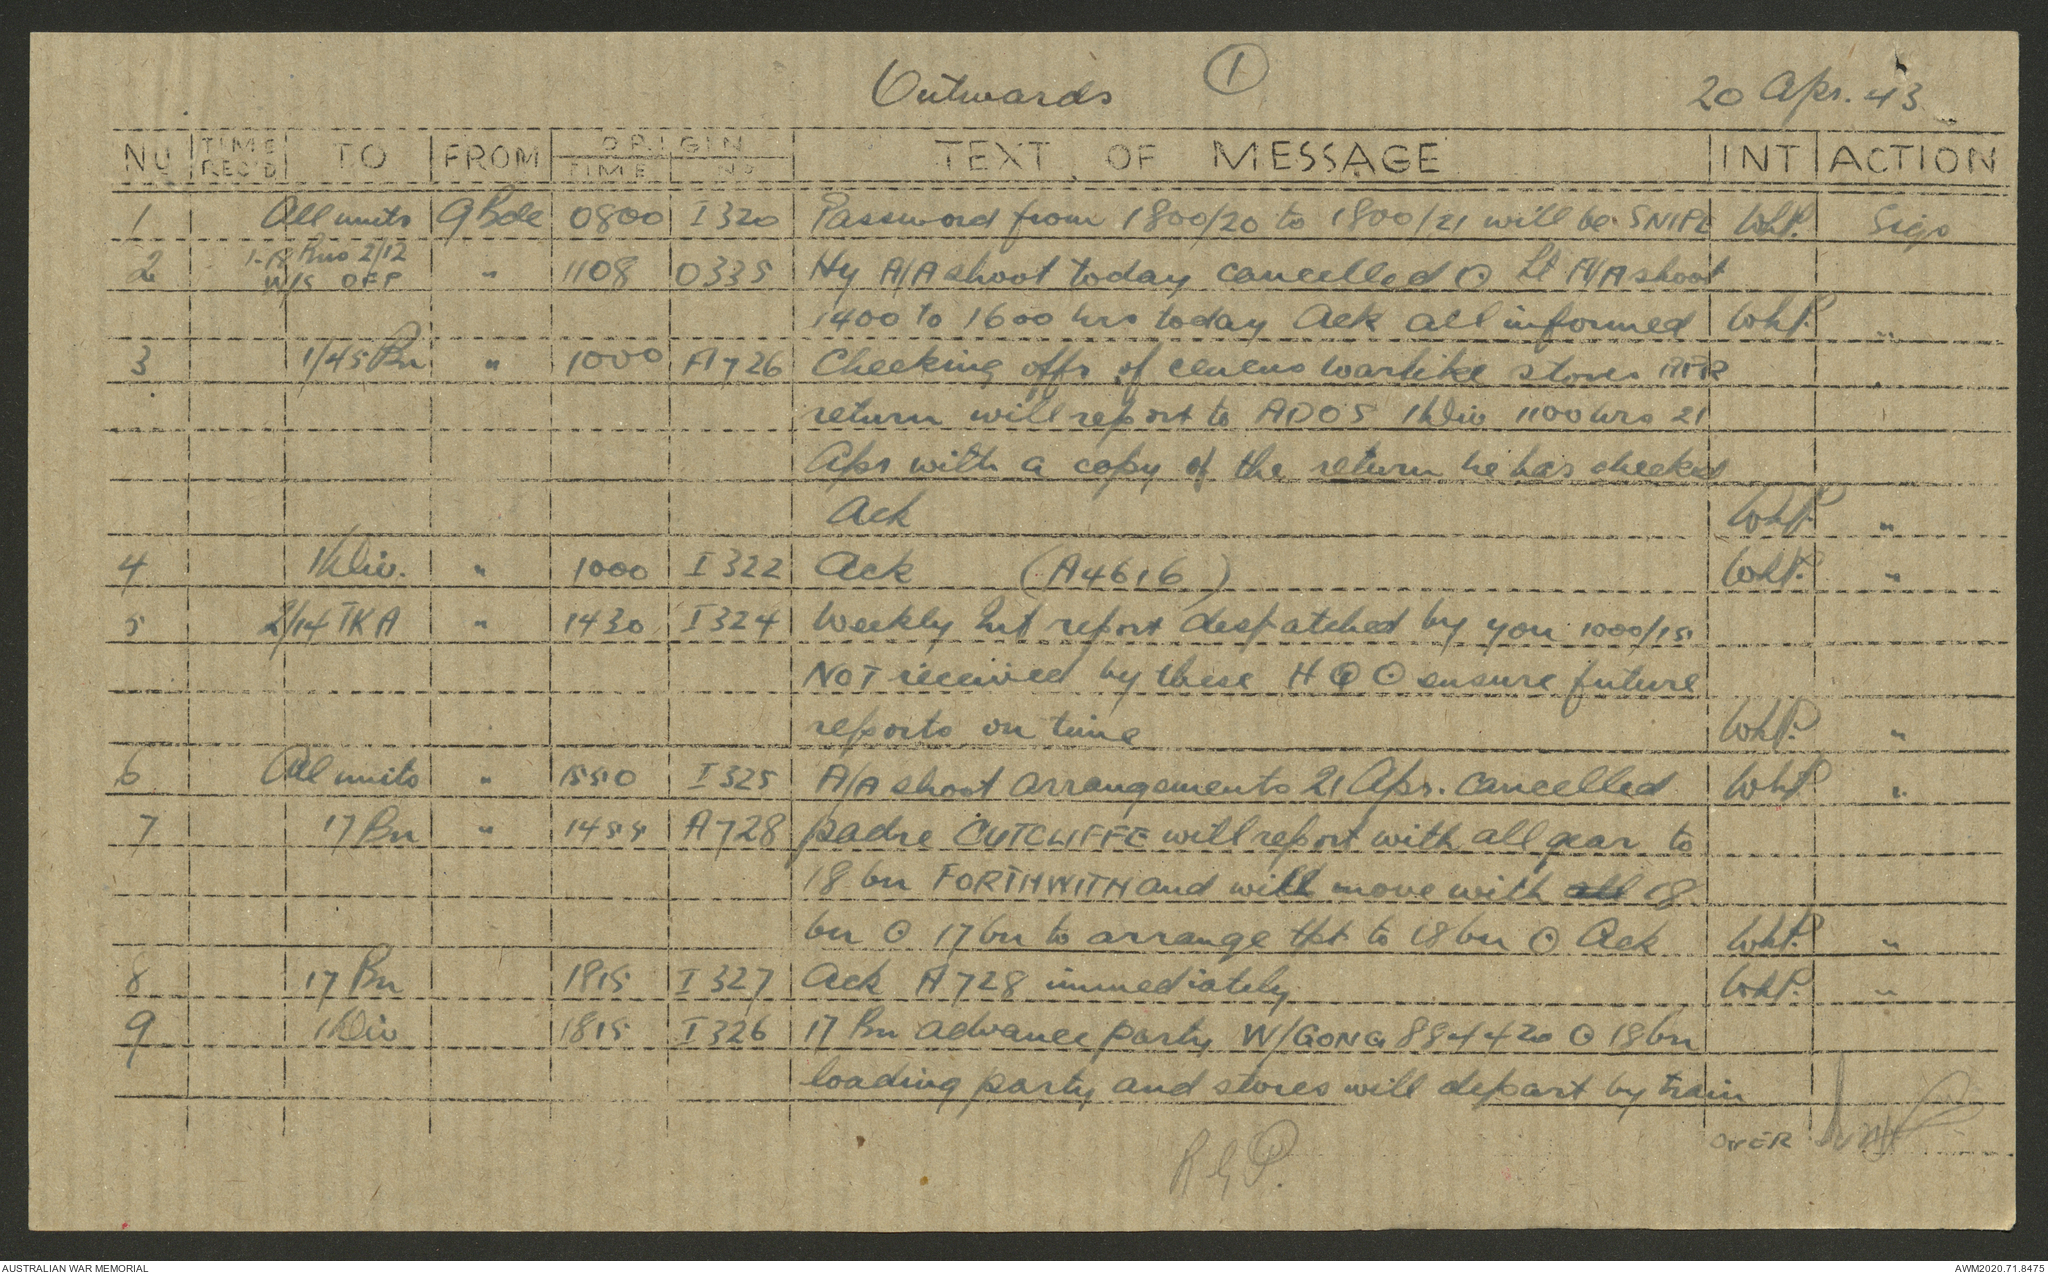 Outwards ① 20 Apr. 43
NU TIME REC'D TO FROM ORIGIN TIME NO TEXT OF MESSAGE INT ACTION
1 All units 9 Bde 0800 I 320 Password from 1800/20 to 1800/21 will be SNIPE WhP. Sigs
2 Bns 2/12 " 1108 0335 Hy A/A shoot today cancelled ⊙ Lt A/A shoot
1400 to 1600 hrs today Ack all informed WhP. "
3 1/45 Bn " 1000 A 726 Checking offr of census warlike stores
return will report to ADOS 1 Div 1100 hrs 21
Apr with a copy of the return he has checked
Ack WhP. "
4 1 Div. " 1000 I 322 Ack (A4616) WhP. "
5 2/14 " 1430 I 324 Weekly Int report despatched by you 1000/15
NOT received by these HQ ⊙ ensure future
reports on time WhP. "
6 All units " 1550 I 325 A/A shoot arrangements 21 Apr. cancelled WhP "
7 17 Bn " 1455 A 728 padre CUTCLIFFE will report with all gear to
18 bn FORTHWITH and will move with all 18
bn ⊙ 17 bn to arrange tpt to 18 bn ⊙ Ack WhP. "
8 17 Bn 1815 I 327 Ack A 728 immediately WhP. "
9 1 Div 1815 I 326 17 Bn advance party W/GONG 884420 ⊙ 18 bn
loading party and stores will depart by train
OVER
AUSTRALIAN WAR MEMORIAL AWM2020.71.8475